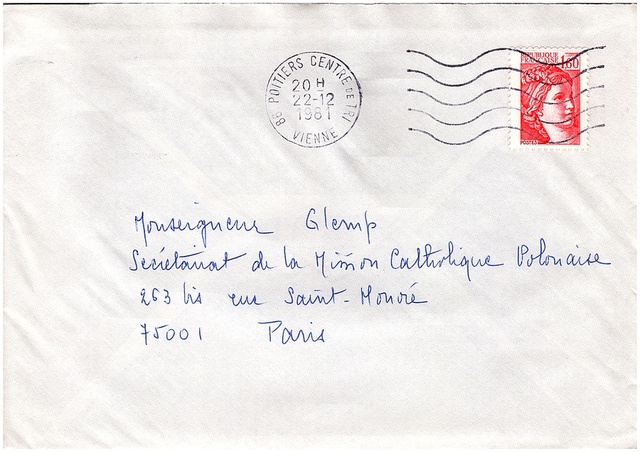 86 POITIERS CENTRE DE TRI
20 H
22-12
1981
VIENNE
REPUBLIQUE
FRANÇAISE 1,60
POSTES
Monseigneur Glemp
Secrétariat de la Mission Catholique Polonaise
263 bis rue Saint-Honoré
75001 Paris